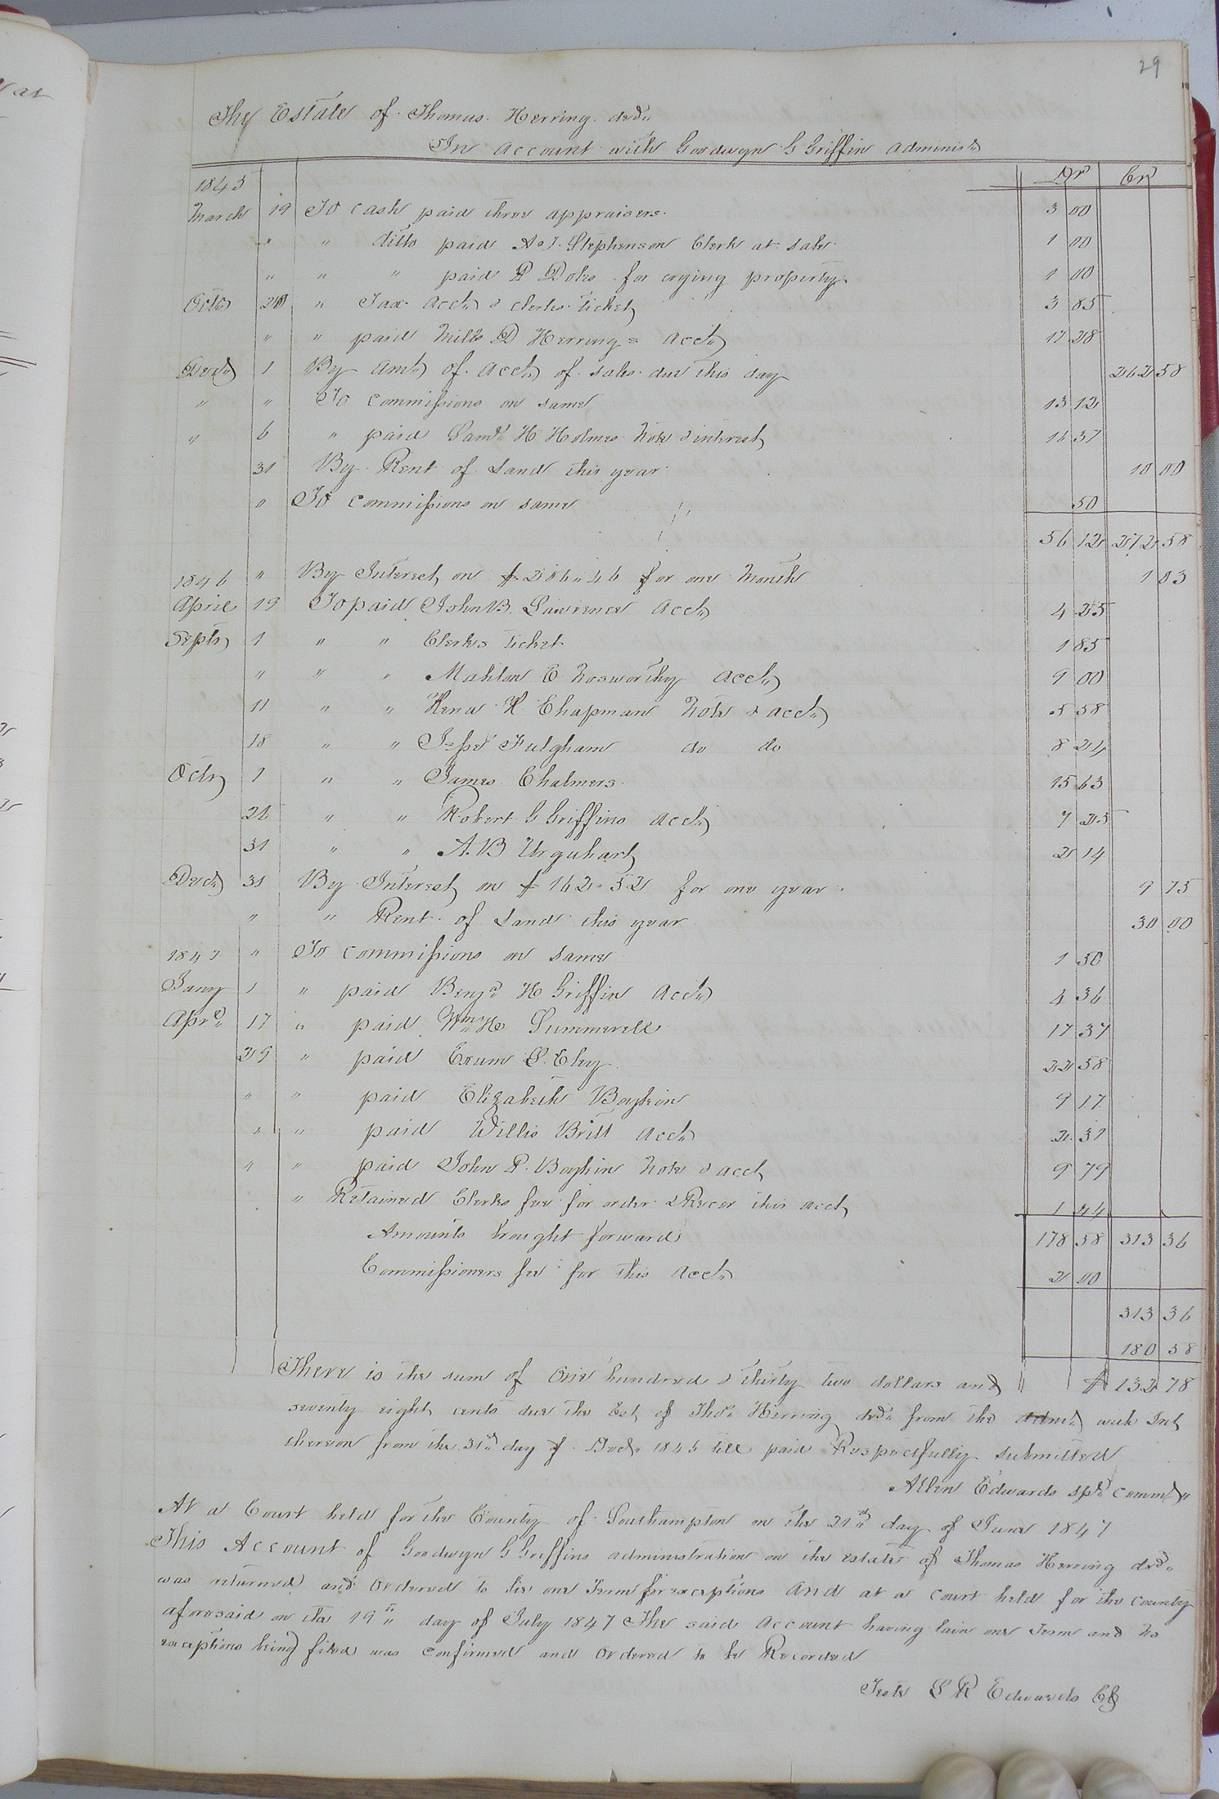 29
The Estate of Thomas Herring decd.
In account with Goodwyn G Griffin Administr
Dr Cr
1845
March 19 To cash paid three appraisers 3 00
" " ditto paid A. J. Stephenson Clerk at sale 1 00
" " " paid P Doles for crying property 1 00
Octo 20 " Tax acct. & clerks ticket 3 85
" " paid Mills D Herring acct. 17 28
Decr 1 By Amt. of acct. of sales due this day 262 58
" " To commissions on same 13 12
" 6 " paid Saml. H Holmes note & interest 16 37
31 By Rent of Land this year 10 00
" To commissions on same 50
56 12 272 58
1846 " By Interest on $206.46 for one Month 1 03
April 19 To paid John B. Lawrence acct. 4 25
Septr 1 " " Clerks ticket 1 85
" " " Mahlon C Norsworthy acct. 9 00
11 " " H Chapman Note & acct. 5 58
18 " " Fulgham do do 8 24
Octr 1 " " James Chalmers 15 63
22 " " Robert G Griffins acct. 7 25
31 " " A. B Urquhart 2 14
Decr. 31 By Interest on $162.52 for one year 9 75
" " Rent of Land this year 30 00
1847 " To commissions on same 1 50
Jany 1 " paid Benja H Griffin acct. 4 36
Aprl. 17 " paid Wm H Summerell 17 37
29 " paid Exum S. Eley 22 58
" " paid Elizabeth Boykin 9 17
" " paid Willis Britt acct. 2 31
" " paid John P. Boykin Note & acct. 9 79
" Retained Clerks fee for order & Recor this acct, 1 44
Amounts brought forward 178 58 313 36
Commissioners fee for this acct. 2 00
313 36
180 58
There is the sum of One hundred & thirty two dollars and $132 78
seventy eight cents due the Est. of Thos. Herring decd. from the admr. with Int
thereon from the 31st day of Decr 1846 till paid Respectfully submitted
Edwards spl. commr.
At a Court held for the County of Southampton on the 21st day of June 1847
This Account of Goodwyn G Griffins administration on the estate of Thomas Herring decd.
was returned and Ordered to lie one Term for exceptions And at a court held for the county
aforesaid on the 19th day of July 1847 The said Account having lain one Term and no
exceptions being filed was confirmed and Ordered to be Recorded
Teste L R Edwards CC